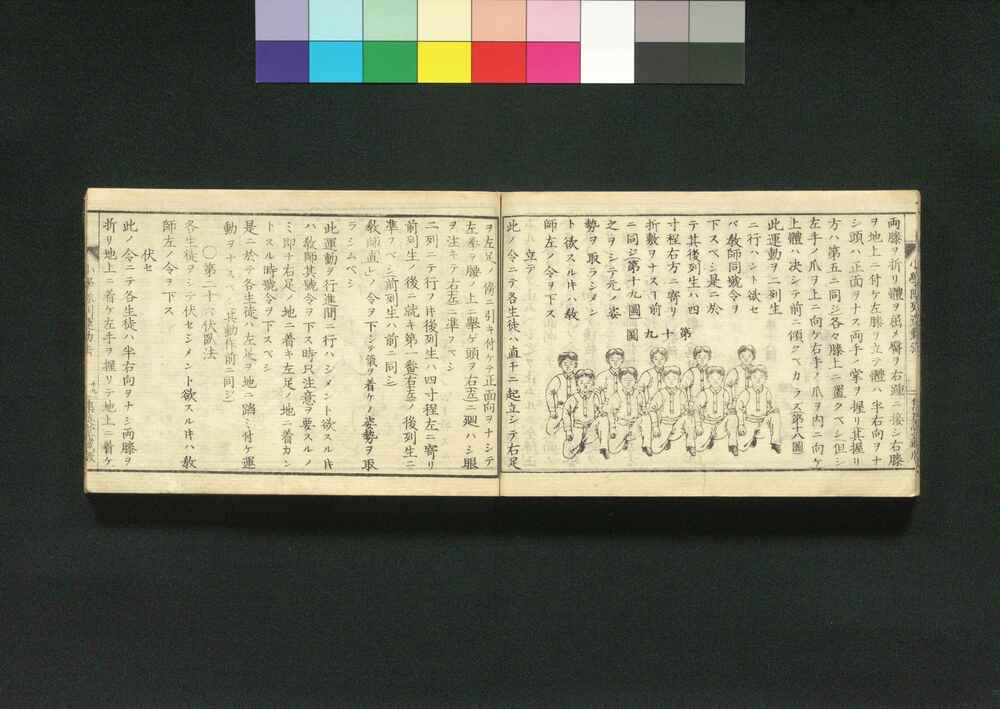 兩膝ヲ折リ體ヲ屈メ臀ヲ右踵ニ接シ右膝
ヲ地上ニ付ケ左膝ヲ立テ體ハ半右向ヲナ
シ頭ハ正面ヲナス両手ノ掌ヲ握リ其握リ
方ハ第五ニ同シ各々膝上ニ置クベシ但シ
左手ノ爪ヲ上ニ向ケ右手ノ爪ヲ内ニ向ケ
上體ハ决シテ前ニ傾クベカラス第十八圖
此運動ヲ二列生
ニ行ハント欲セ
バ敎師同號令ヲ
下スベシ是ニ於
テ其後列生ハ四
寸程右方ニ寄リ
折敷ヲナスヿ前
ニ同シ第十九圖
之ヲシテ元ノ姿
勢ヲ取ラシメン
ト欲スルキハ敎
師左ノ令ヲ下ス
立テ
此ノ令ニテ各生徒ハ直チニ起立シテ右足
第十九圖
ヲ左足ノ傍ニ引キ付ケテ正面向ヲナシテ
左拳ヲ腰ノ上ニ擧ケ頭ヲ右左ニ廻ハシ眼
ヲ注キテ右左ニ準フベシ
二列ニテ行フキ後列生ハ四寸程左ニ寄リ
前列生ノ後ニ就キ第一番右左ノ後列生ニ
準フベシ前列生ハ前ニ同シ
敎師直レノ令ヲ下シテ氣ヲ着ケノ姿勢ヲ取
ラシムベシ
此運動ヲ行進間ニ行ハシメント欲スルキ
ハ敎師其號令ヲ下ス時只注意ヲ要スルノ
ミ即チ右足ノ地ニ着キ左足ノ地ニ着カン
トスル時號令ヲ下スベシ
是ニ於テ各生徒ハ左足ヲ地ニ踏ミ付ケ運
動ヲナスベシ其動作前ニ同シ
〇第二十六伏臥法
各生徒ヲシテ伏セシメント欲スルキハ敎
師左ノ令ヲ下ス
伏セ
此ノ令ニテ各生徒ハ半右向ヲナシ両膝ヲ
折リ地上ニ着ケ左手ヲ握リテ地上ニ着ケ